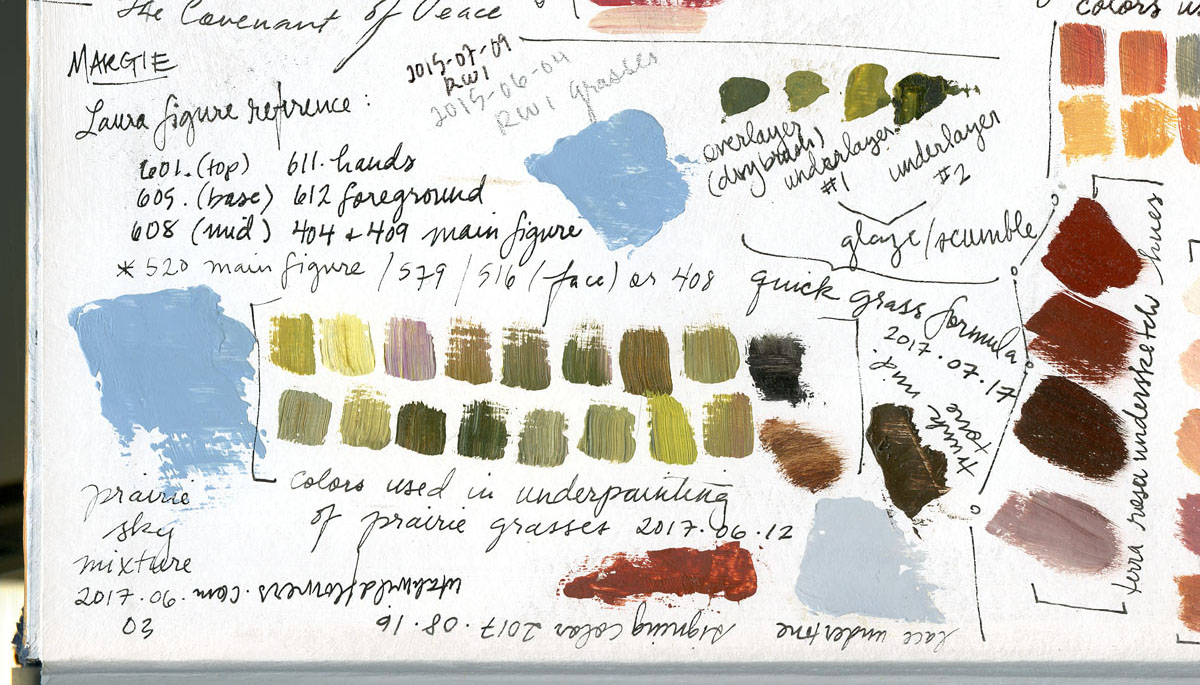 The Covenant of Peace
colors
MARGIE
2015-07-09
RW1
2015-06-04
RW1 grasses
Laura figure reference:
601. (top) 611. hands
605. (base) 612 foreground
608 (mid) 404 + 409 main figure
* 520 main figure / 579 / 516 (face) or 408
overlayer
(drybrush)
underlayer
#1
underlayer
#2
glaze/scumble
quick grass formula
2017.07.17
mid
tone
trunk
terra rosa undersketch hues
colors used in underpainting
of prairie grasses 2017.06.12
prairie
sky
mixture
2017.06.
03
utahwildflowers.com
signing color 2017.08.16
lace undertone